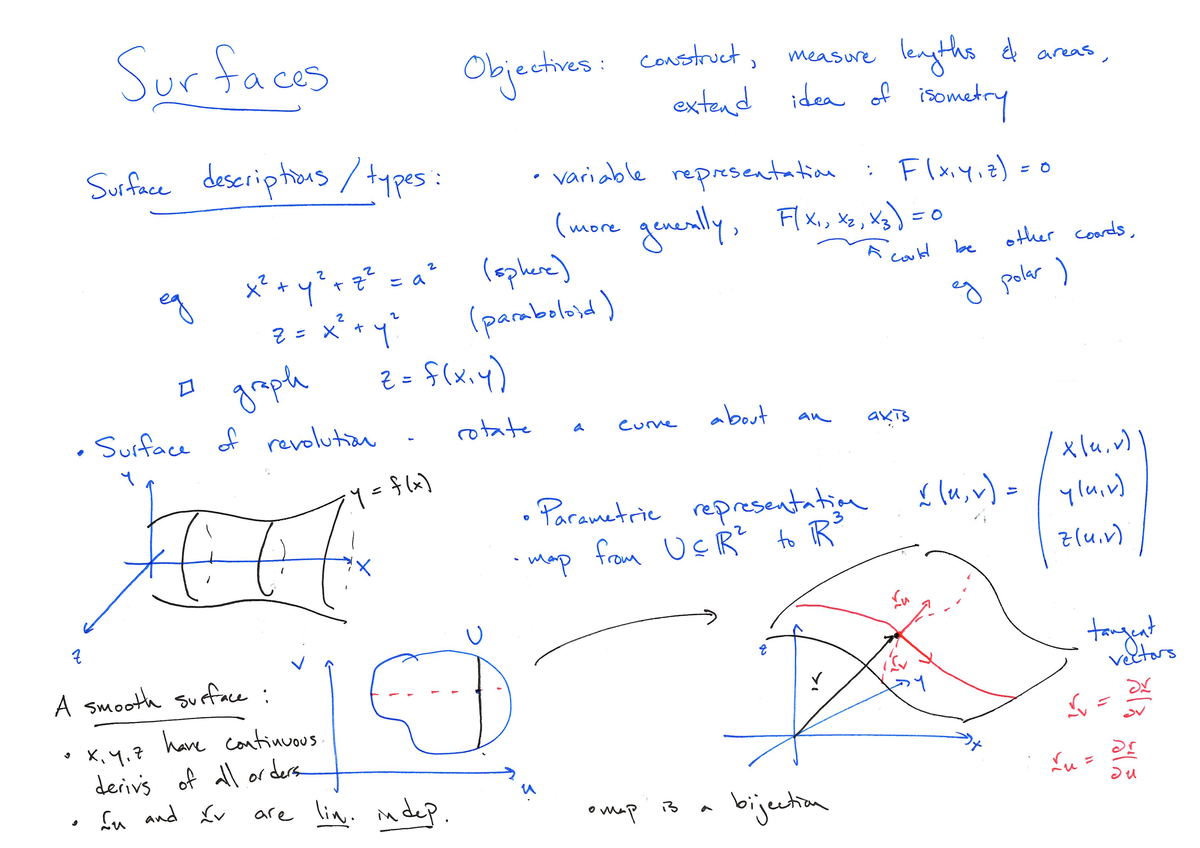 Surfaces
Objectives: construct, measure lengths & areas,
extend idea of isometry
Surface descriptions / types:
• variable representation : F(x,y,z) = 0
(more generally, F(x₁, x₂, x₃) = 0
could be other coords,
eg polar)
eg x² + y² + z² = a² (sphere)
z = x² + y² (paraboloid)
□ graph z = f(x,y)
• Surface of revolution - rotate a curve about an axis
y
y = f(x)
x
z
• Parametric representation r(u,v) = ( x(u,v)
y(u,v)
z(u,v) )
• map from U ⊆ ℝ² to ℝ³
v
U
u
z
r
r_u
r_v
y
x
tangent
vectors
r_v = ∂r/∂v
r_u = ∂r/∂u
A smooth surface :
• x,y,z have continuous
deriv's of all orders
• r_u and r_v are lin. indep.
• map is a bijection